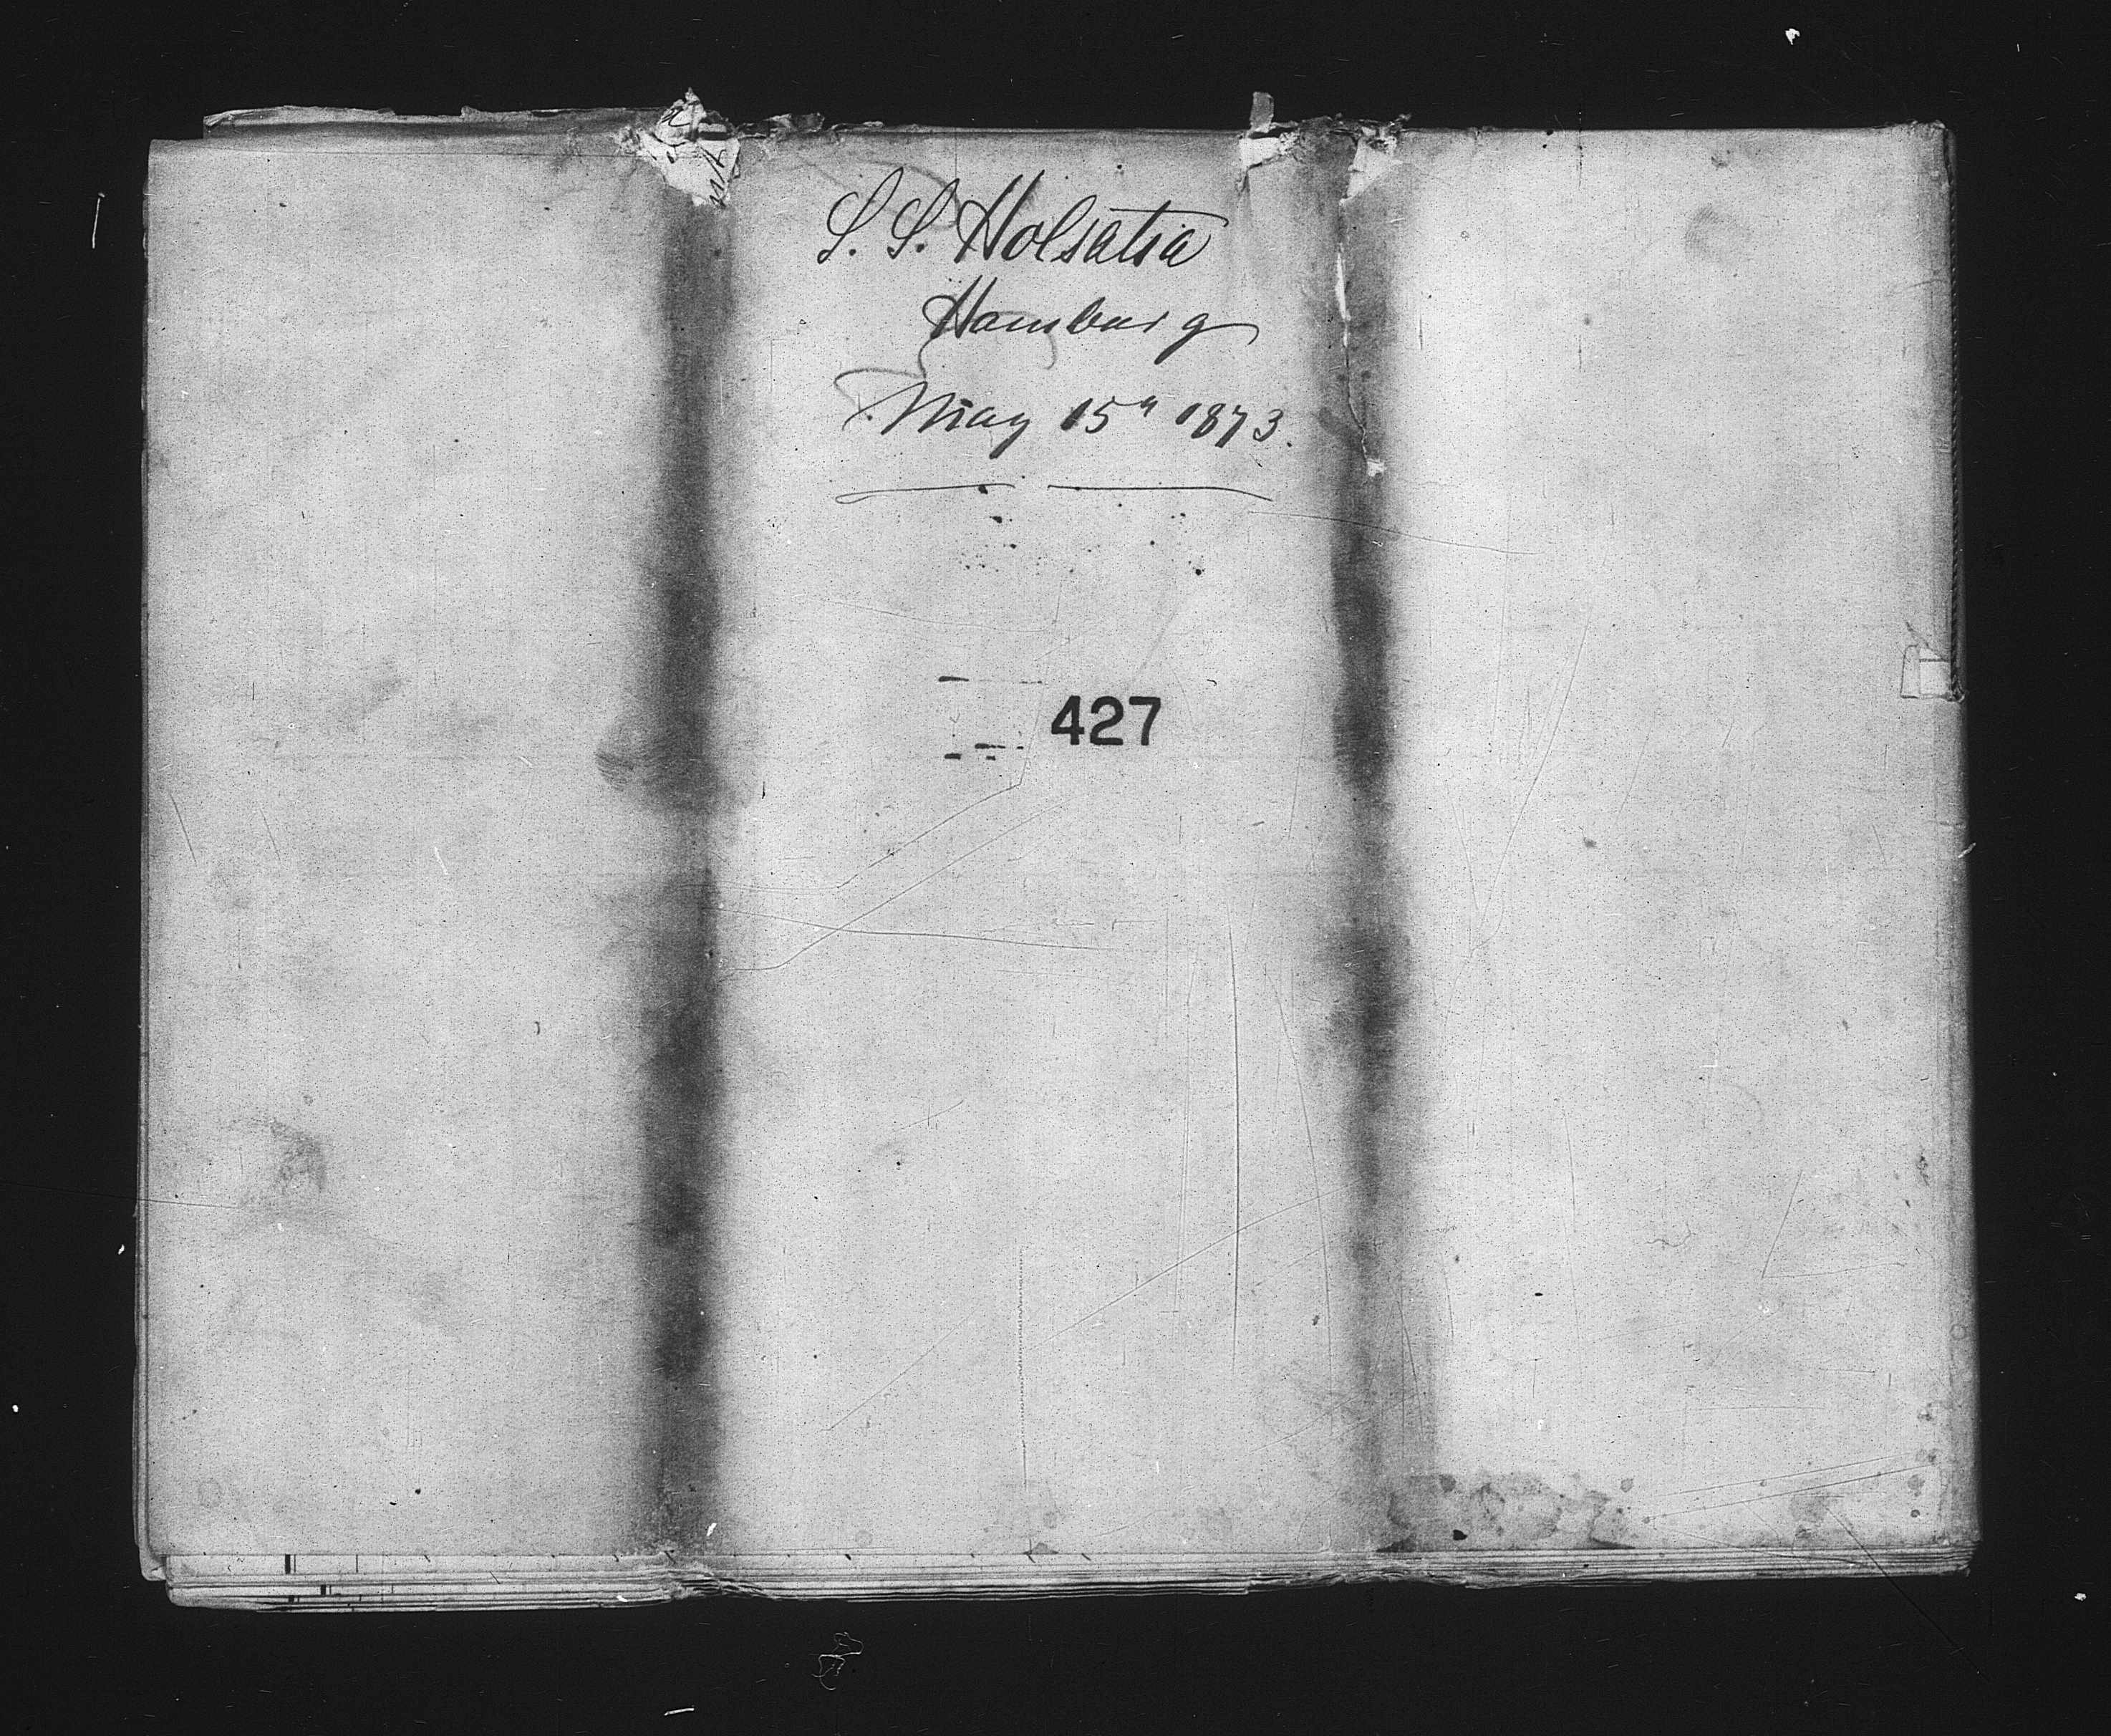 S. S. Holsatia
Hamburg
May 15" 1873.
427